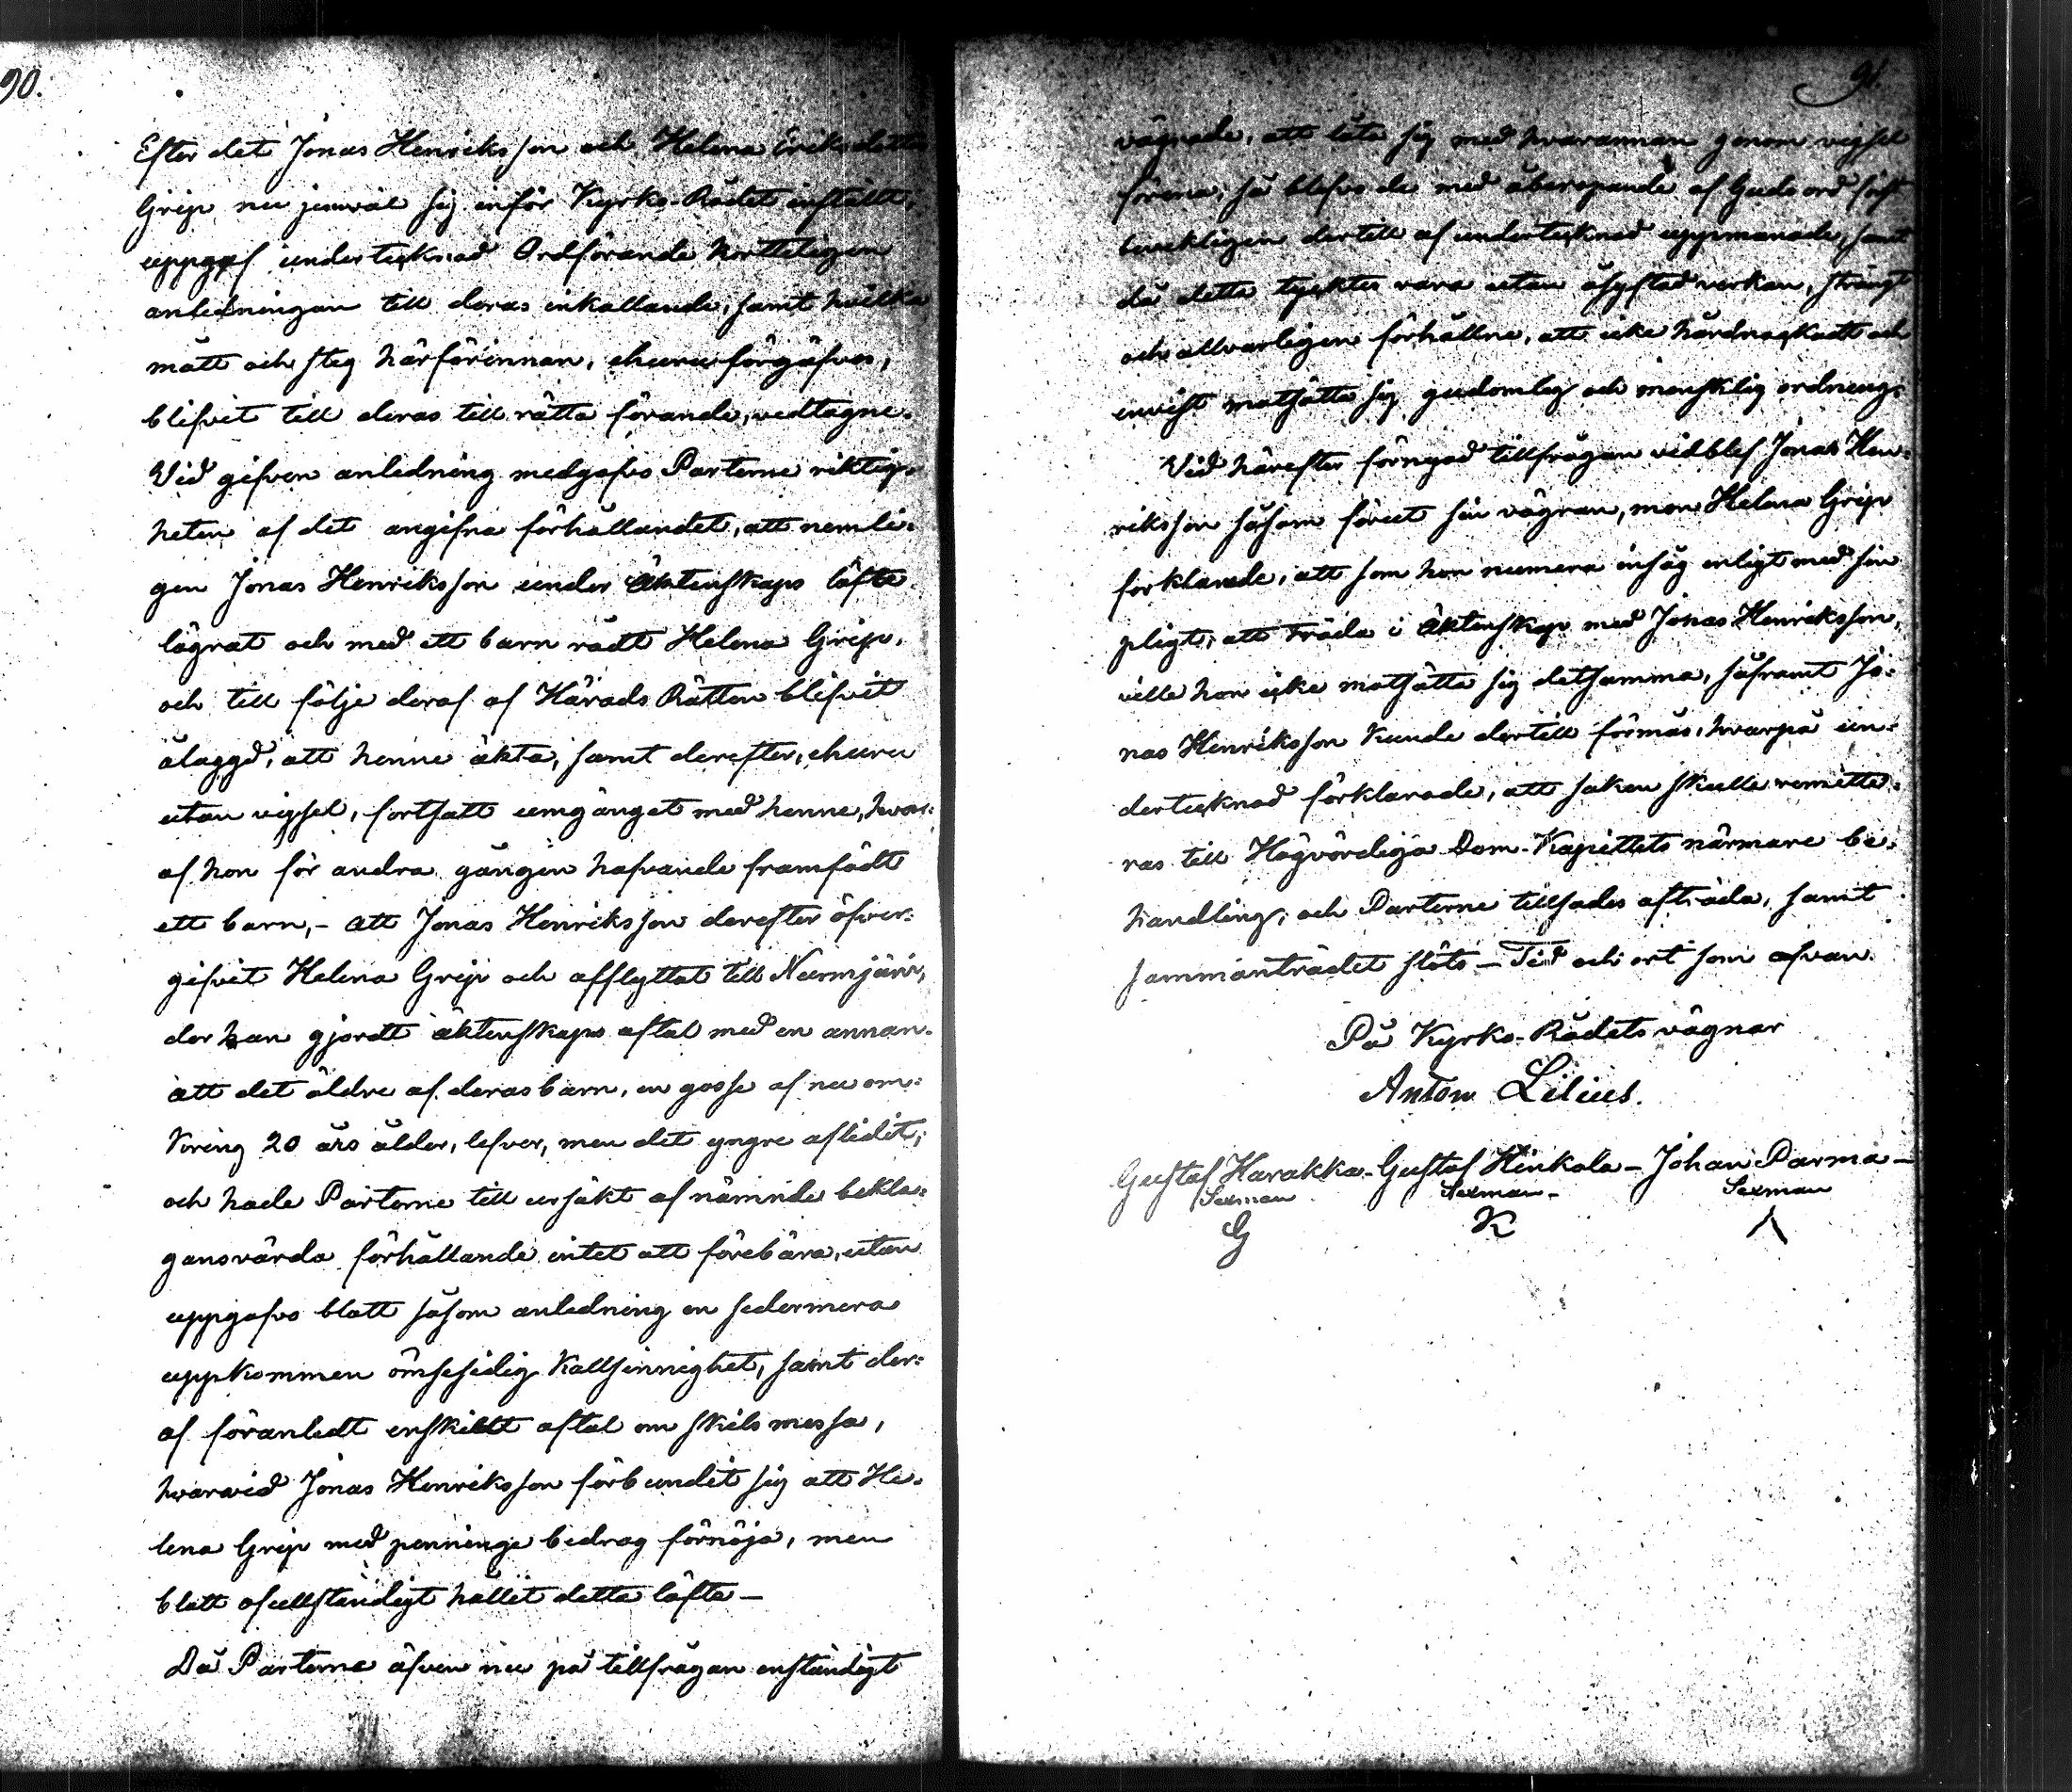 90.
Efter det Jonas Henriksson och Helena Eriksdotter
Grip nu jemväl sig inför Kyrko-Rådet inställt,
uppgaf undertecknad Ordförande kortteligen
anledningen till deras inkallande, samt hvilka
mått och steg härförinnan, ehuru förgäfves,
blifvit till deras till rätta förande, vedtagne.
Vid gifven anledning medgafvo Parterne riktig-
heten af det angifna förhållandet, att nemli-
gen Jonas Henriksson under Äktenskaps löfte
lägrat och med ett barn rådt Helena Grip,
och till följe deraf af Härads Rätten blifvit
ålaggd, att henne äkta, samt derefter, ehuru
utan vigsel, fortsatt umgänget med henne, hvar-
af hon för andra gången hafvande framfödt
ett barn, - att Jonas Henriksson derefter öfver-
gifvit Helena Grip och afflyttat till Nurmjärvi,
der han gjordt äktenskaps aftal med en annan.
att det äldre af deras barn, en gosse af nu om-
kring 20 års ålder, lefver, men det yngre aflidit;
och hade Parterne till ursäkt af nämnde bekla-
gansvärda förhållande intet att förebära, utan
uppgafvo blott såsom anledning en sedermera
uppkommen ömsesidig Kallsinnighet, samt der-
af föranledt enskildt aftal om skilsmessa,
hvarvid Jonas Henriksson förbundit sig att He-
lena Grip med penninge bedrag förnöja, men
blott ofullständigt hållit detta löfte —
Då Parterne äfven nu på tillfrågan enständigt
91.
vägrade, att låta sig med hvarannan genom vigsel
förena, så blefvo de med åberopande af Guds ord först
bevekligen dertill af undertecknad uppmanade, samt
då detta tycktes vara utan åsyftad verkan, strängt
och allvarligen förhållne, att icke hårdnackadt och
envist motsätta sig gudomlig och mensklig ordning.
Vid härefter förnyad tillfrågan vidblef Jonas Hen-
riksson såsom förut sin vägran, men Helena Grip
förklarade, att som hon numera insåg enligt med sin
pligt, att träda i Äktenskap med Jonas Henriksson,
ville hon icke motsätta sig detsamma, såframt Jo-
nas Henriksson kunde dertill förmås, hvarpå un-
dertecknad förklarade, att saken skulle remitte-
ras till Högvördiga Dom-Kapitlets närmare be-
handling; och Parterne tillsades afträda, samt
sammanträdet slöts — Tid och ort som ofvan.
På Kyrko-Rådets vägnar
Anton Lilius.
Gustaf Harakka - Gustaf Hinkala - Johan Parma -
Sexman Sexman - Sexman
G K Λ